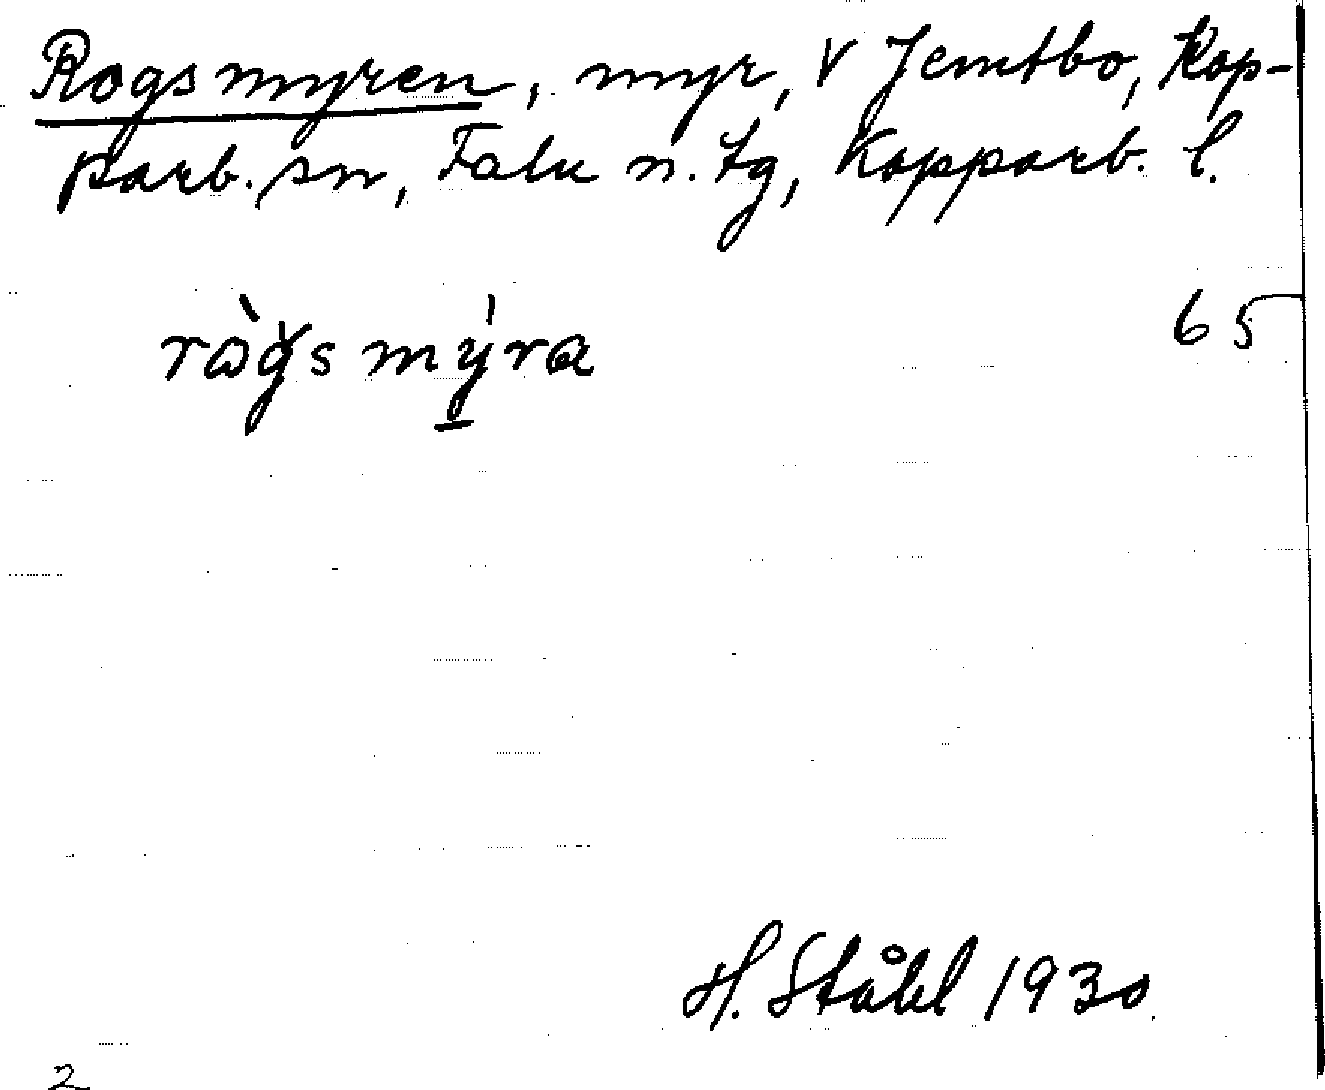 Rogsmyren, myr, V Jemtbo, Kop-
parb. sn, Falu n. tg, Kopparb. l.
65
rògs mýra
H. Ståhl 1930
2